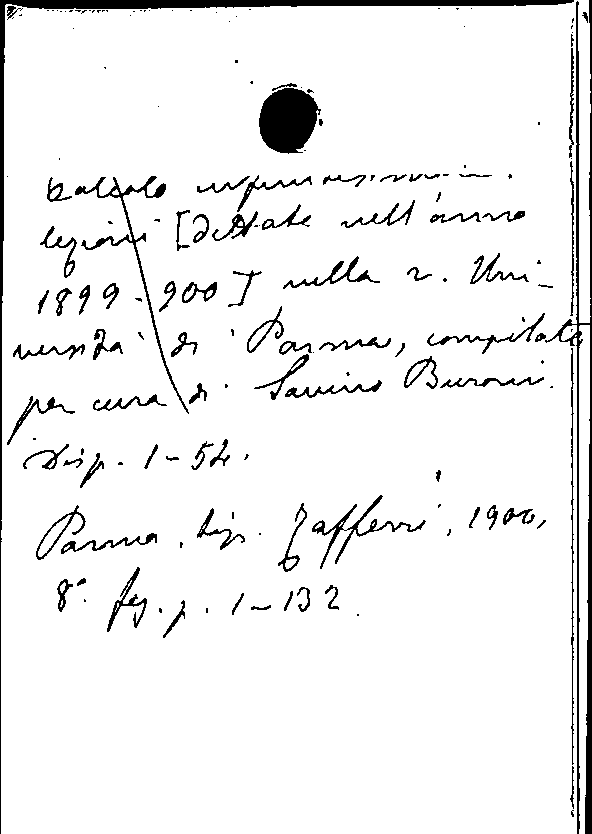 Calcolo infinitesimale.
lezioni [dettate nell'anno
1899-900] nella r. Uni-
versità di Parma, compilate
per cura di Savino Buroni.
Disp. 1-54.
Parma, tip. Zafferri, 1900,
8° fig. p. 1-132.